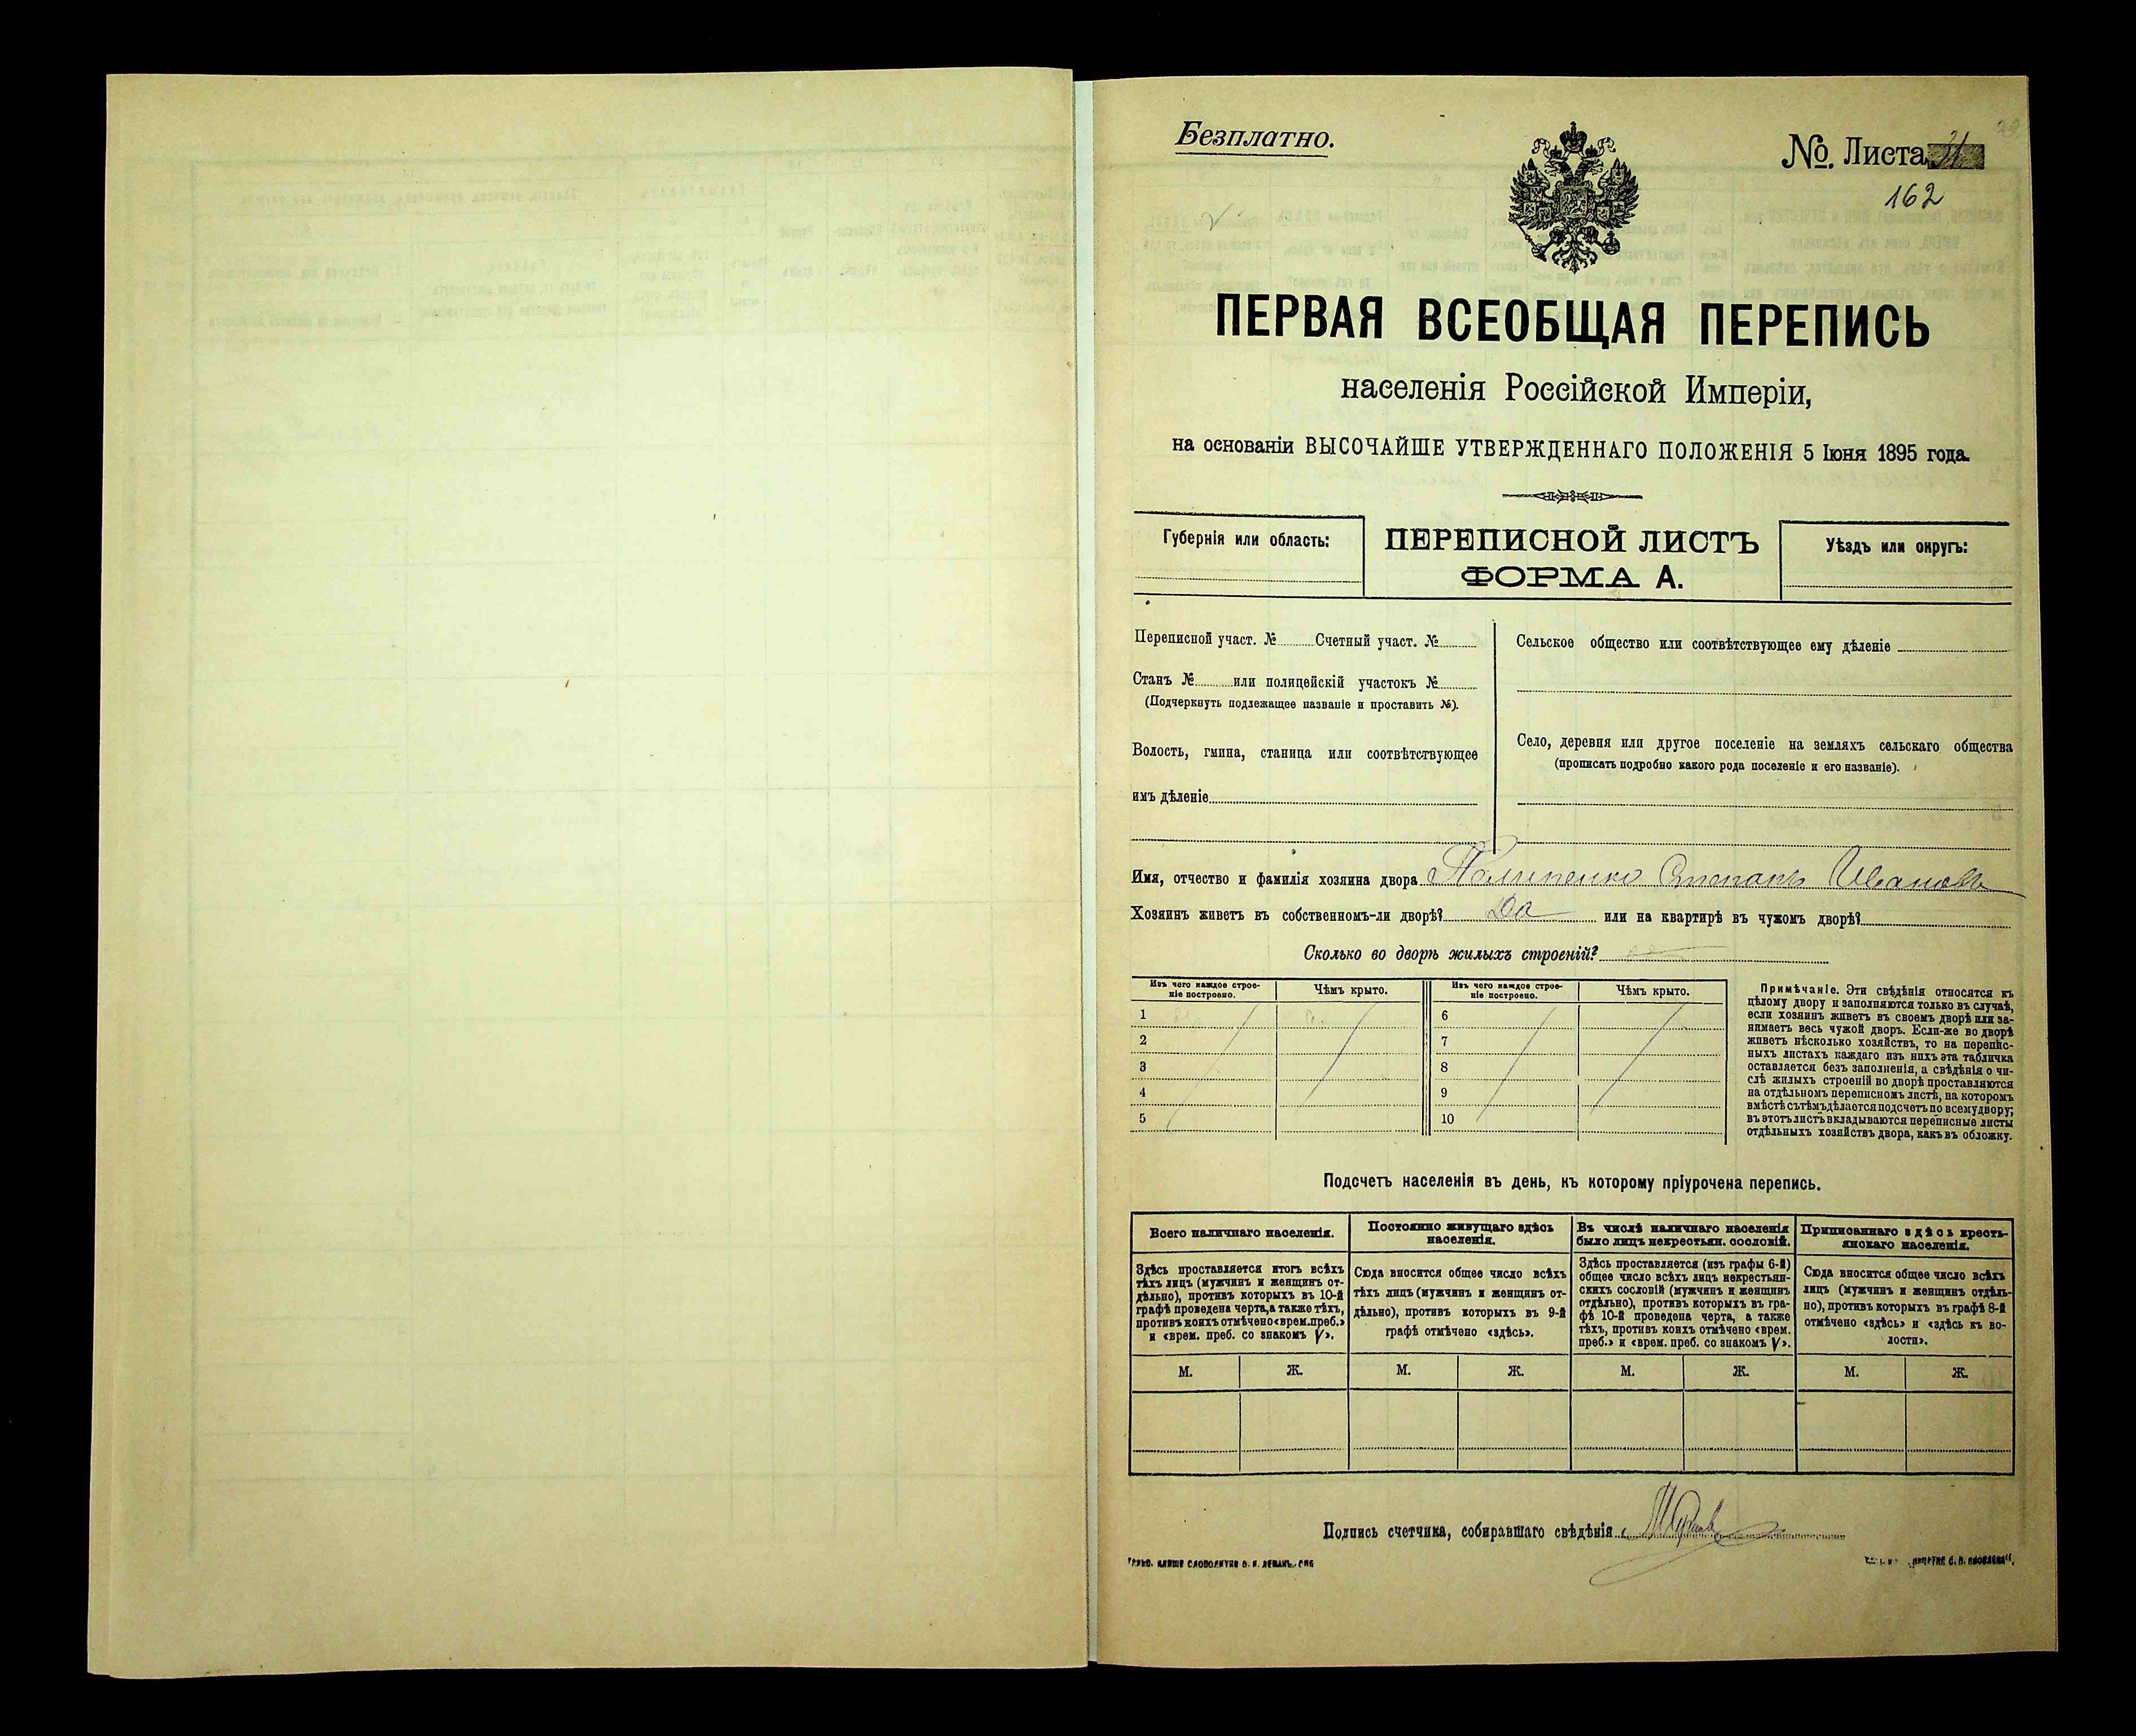 Безплатно.
№. Листа
162
ПЕРВАЯ ВСЕОБЩАЯ ПЕРЕПИСЬ
населенія Россійской Имперіи,
на основаніи ВЫСОЧАЙШЕ УТВЕРЖДЕННАГО ПОЛОЖЕНІЯ 5 Іюня 1895 года.
Губернія или область:
ПЕРЕПИСНОЙ ЛИСТЪ
ФОРМА А.
Уѣздъ или округъ:
Переписной участ. № Счетный участ. №
Станъ № или полицейскій участокъ №
(Подчеркнуть подлежащее названіе и проставить №).
Волость, гмина, станица или соотвѣтствующее
имъ дѣленіе
Сельское общество или соотвѣтствующее ему дѣленіе
Село, деревня или другое поселеніе на земляхъ сельскаго общества
(прописать подробно какого рода поселеніе и его названіе).
Имя, отчество и фамилія хозяина двора Степанъ Ивановъ
Хозяинъ живетъ въ собственномъ-ли дворѣ? Да или на квартирѣ въ чужомъ дворѣ?
Сколько во дворѣ жилыхъ строеній?
Изъ чего каждое строе-
ніе построено.
Чѣмъ крыто.
Изъ чего каждое строе-
ніе построено.
Чѣмъ крыто.
1 6
2 7
3 8
4 9
5 10
Примѣчаніе. Эти свѣдѣнія относятся къ
цѣлому двору и заполняются только въ случаѣ,
если хозяинъ живетъ въ своемъ дворѣ или за-
нимаетъ весь чужой дворъ. Если-же во дворѣ
живетъ нѣсколько хозяйствъ, то на перепис-
ныхъ листахъ каждаго изъ нихъ эта табличка
оставляется безъ заполненія, а свѣдѣнія о чи-
слѣ жилыхъ строеній во дворѣ проставляются
на отдѣльномъ переписномъ листѣ, на которомъ
вмѣстѣ съ тѣмъ дѣлается подсчетъ по всему двору;
въ этотъ листъ вкладываются переписные листы
отдѣльныхъ хозяйствъ двора, какъ въ обложку.
Подсчетъ населенія въ день, къ которому пріурочена перепись.
Всего наличнаго населенія.
Здѣсь проставляется итогъ всѣхъ
тѣхъ лицъ (мужчинъ и женщинъ от-
дѣльно), противъ которыхъ въ 10-й
графѣ проведена черта, а также тѣхъ,
противъ коихъ отмѣчено «врем. преб.»
и «врем. преб. со знакомъ V».
Постоянно живущаго здѣсь
населенія.
Сюда вносится общее число всѣхъ
тѣхъ лицъ (мужчинъ и женщинъ от-
дѣльно), противъ которыхъ въ 9-й
графѣ отмѣчено «здѣсь».
Въ числѣ наличнаго населенія
было лицъ некрестьян. сословій.
Здѣсь проставляется (изъ графы 6-й)
общее число всѣхъ лицъ некрестьян-
скихъ сословій (мужчинъ и женщинъ
отдѣльно), противъ которыхъ въ гра-
фѣ 10-й проведена черта, а также
тѣхъ, противъ коихъ отмѣчено «врем.
преб.» и «врем. преб. со знакомъ V».
Приписаннаго здѣсь кресть-
янскаго населенія.
Сюда вносится общее число всѣхъ
лицъ (мужчинъ и женщинъ отдѣль-
но), противъ которыхъ въ графѣ 8-й
отмѣчено «здѣсь» и «здѣсь къ во-
лости».
М. Ж. М. Ж. М. Ж. М. Ж.
Подпись счетчика, собиравшаго свѣдѣнія